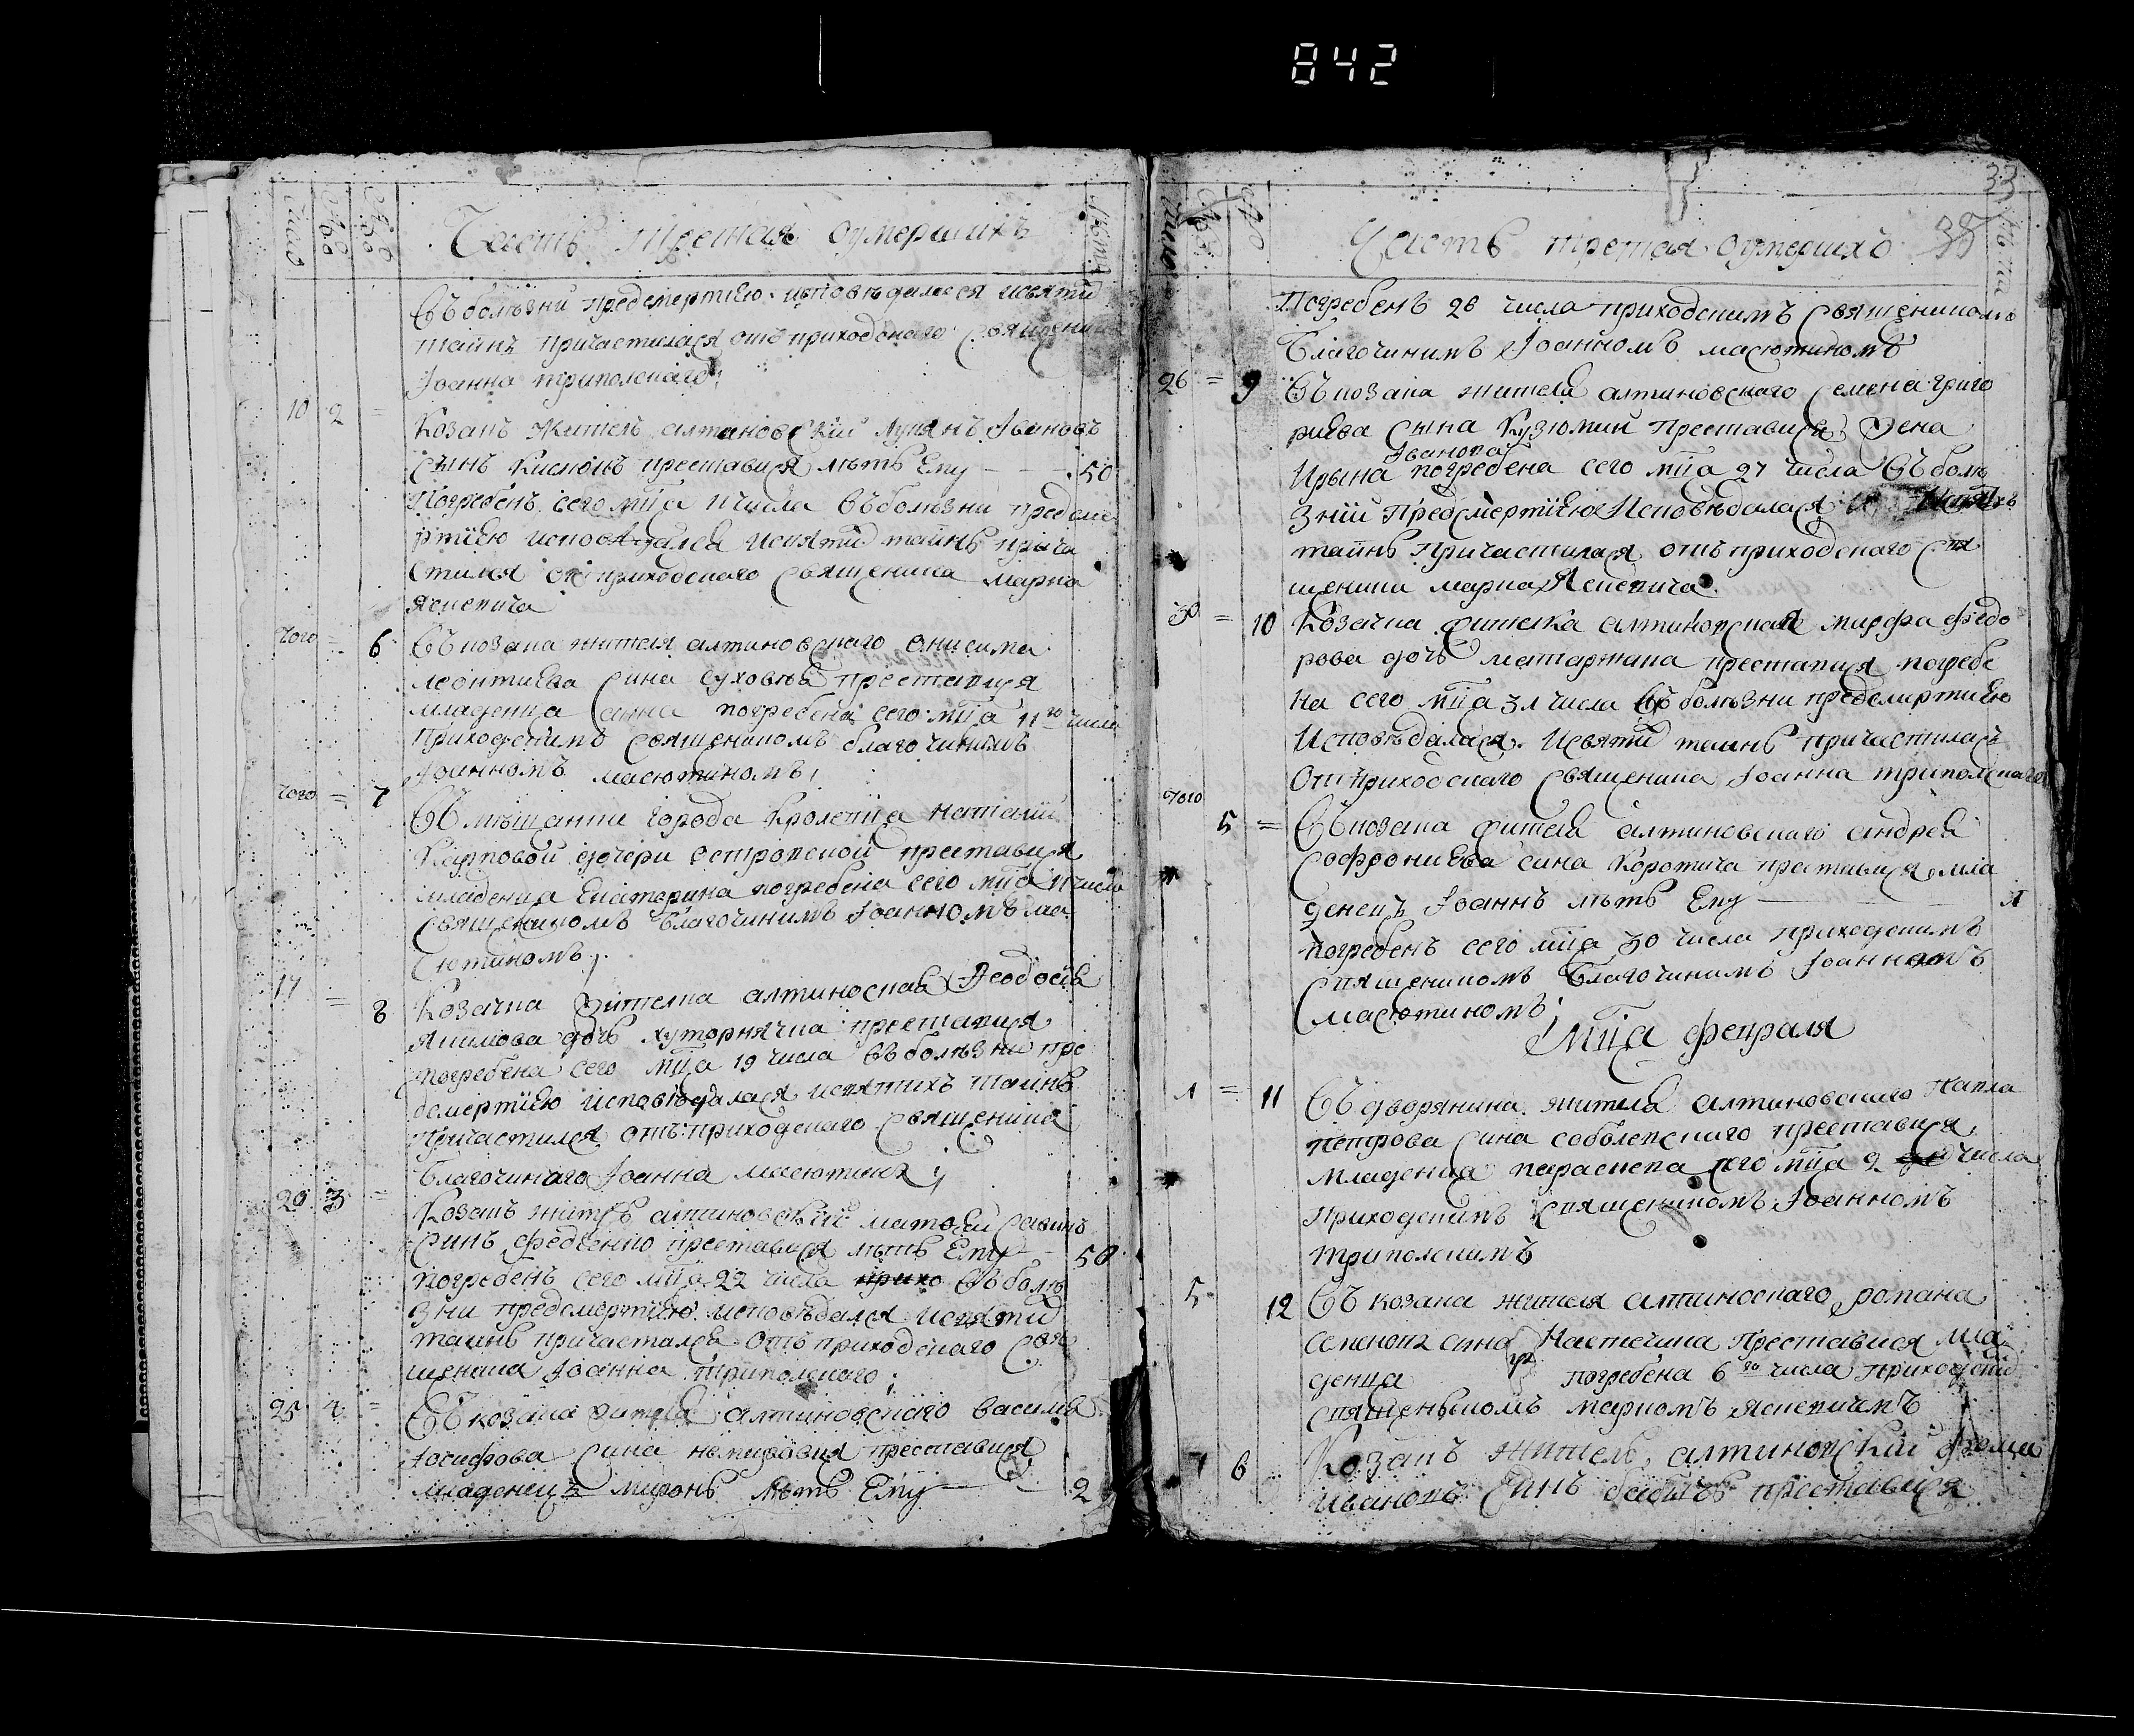 842
Число
Часть третая оумершихъ
Лѣта
Въ болѣзни предсмертною исповѣдалася исвятй
тайнъ причастилася отъ приходского священни
Іоанна триполского;
10 2 =
Козакъ житель алтиновскій лукянъ Івановъ
сынъ преставися лѣтъ Ему 50
Погребенъ сего мца 11 числа въ болѣзни предсме
ртною исповѣдался исвятй тайнъ прыча
стился отъ приходского священика марка
Ясневича
того = 6
Въ козака жителя алтиновского онисима
леонтиева сина преставися
младенца анна погребена сего мца 11го числа
Приходскимъ священикомъ благочинимъ
Іоанномъ масютиномъ;
того = 7
Въ мѣщанки города Кролевца наталии
Карповой дочери островской преставися
младенца Екатерина погребена сего мца 11 числа
священикомъ Благочинимъ Іоанномъ ма
сютиномъ;
17 = 8
Козачка жителка алтиновская Феодосія
Якимова дочь хуторнячка преставися
погребена сего мца 19 числа въ болѣзни пре
дсмертною исповѣдалася исвятихъ тайнъ
причастился отъ приходского священика
Благочинаго Іоанна масютина;
20 3 =
Козакъ житель алтиновскій матфей савинъ
синъ федченко преставися лѣтъ Ему 50
погребенъ сего мца 22 числа прихо въ болѣ
зни предсмертною исповѣдался исвятй
тайнъ причастился отъ приходского свя
щеника Іоанна триполского;
25 4 =
Въ козака жителя алтиновского василия
Іосифова сина преставися
младенецъ миронъ лѣтъ Ему 2
33
Число
Часть третая оумершихъ
38
Лѣта
Погребенъ 26 числа приходскимъ священикомъ
Благочинимъ Іоанномъ масютиномъ
26 = 9
Въ козака жителя алтиновского семена григо
риева сына Кузюмий преставися жена
Іванова
Ирына погребена сего мца 27 числа въ болѣ
зній предсмертною исповѣдалася исвятихъ
тайнъ причастилася отъ приходского свя
щеника марка Ясневича.
30 = 10
Козачка жителка алтиновская марфа федо
рова дочь преставися погребе
на сего мца 31 числа въ болѣзни предсмертною
исповѣдалася исвятй тайнъ причастилась
отъ приходского священика Іоанна триполского
того 5 =
Въ козака жителя алтиновского андрея
софрониева сина Коротича преставися мла
денецъ Іоаннъ лѣтъ Ему 1
погребенъ сего мца 30 числа приходскимъ
священикомъ Благочинимъ Іоанномъ
масютиномъ;
Мца февраля
1 = 11
Въ дворянина жителя алтиновского павла
петрова сина соболевского преставися
младенца параскева сего мца 2 числа
приходскимъ священикомъ Іоанномъ
триполскимъ
5 12
Въ козака жителя алтиновского романа
семенова сина преставися мла
денца погребена 6го числа приходским
священикомъ маркомъ Ясневичемъ
7 6
Козакъ житель алтиновскій фома
ивановъ синъ преставися